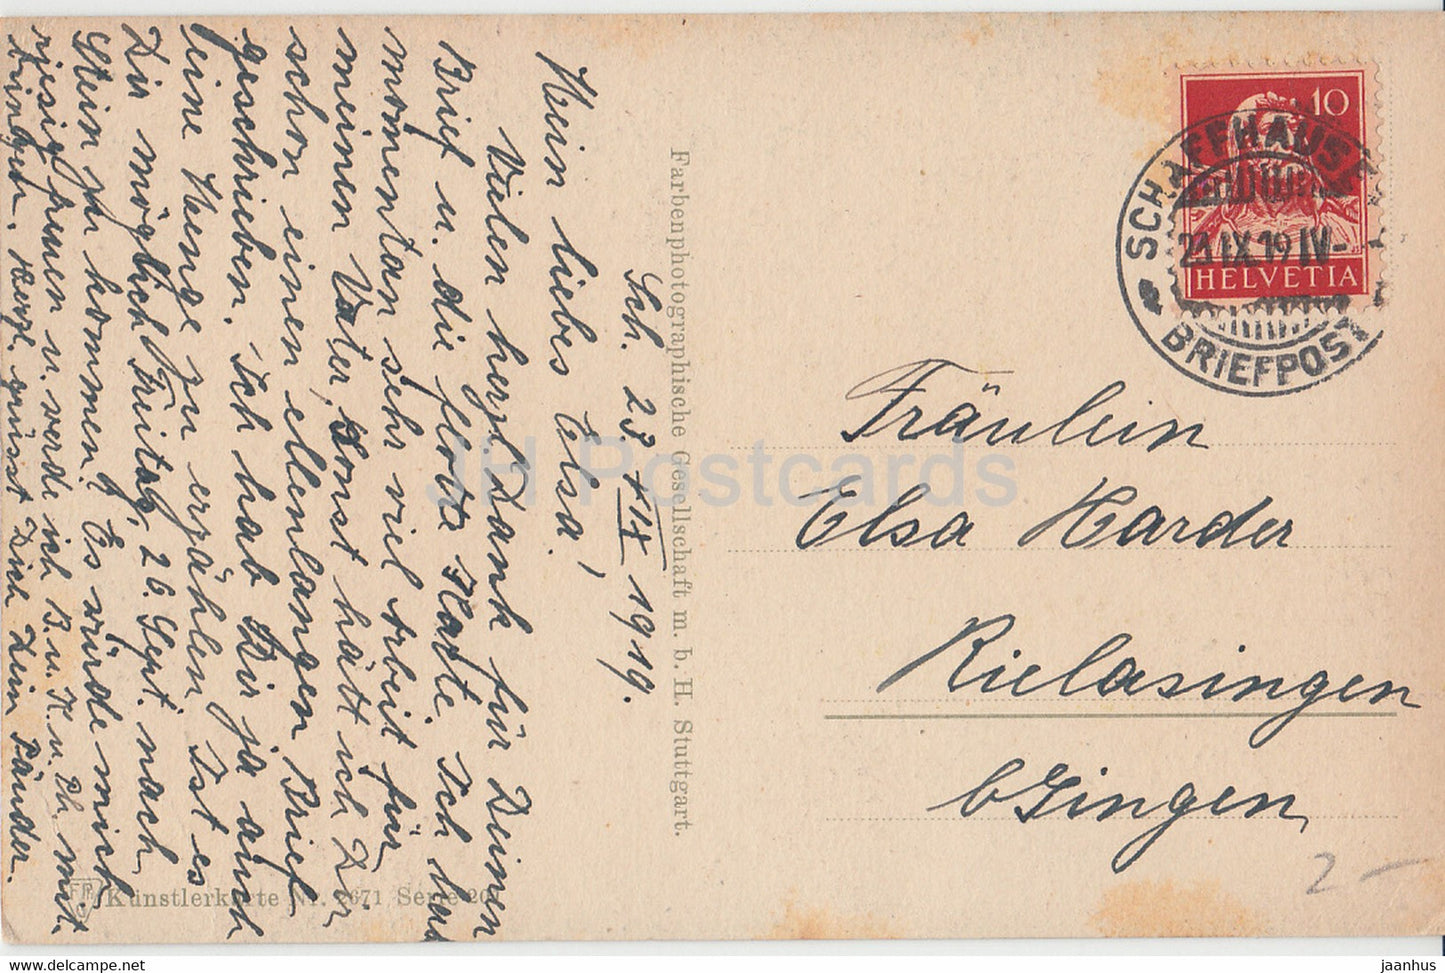 Sch. 23. IX 1919.
Mein liebes Elsa!
Vielen herzl. Dank für Deinen
Brief u. die flotte Karte. Ich hab
momentan sehr viel Arbeit für
meinen Vater, sonst hätt ich Dir
schon einen ellenlangen Brief
geschrieben. Ich hab Dir ja auch
eine Menge zu erzählen. Ist es
Dir möglich Freitag, 26. Sept. nach
Stein zu kommen? Es würde mich
riesig freuen u. werde ich B. u. K. u. Ph. mit
bringen. Herzl. grüsst Dich Dein Pänder.
Farbenphotographische Gesellschaft m. b. H. Stuttgart.
FPG
Künstlerkarte Nr. 2671 Serie 201
10
HELVETIA
SCHAFFHAUSEN
23 IX 19 IV-
BRIEFPOST
Fräulein
Elsa Harder
Rielasingen
b/Singen
2 –
JH Postcards
www.delcampe.net
jaanhus